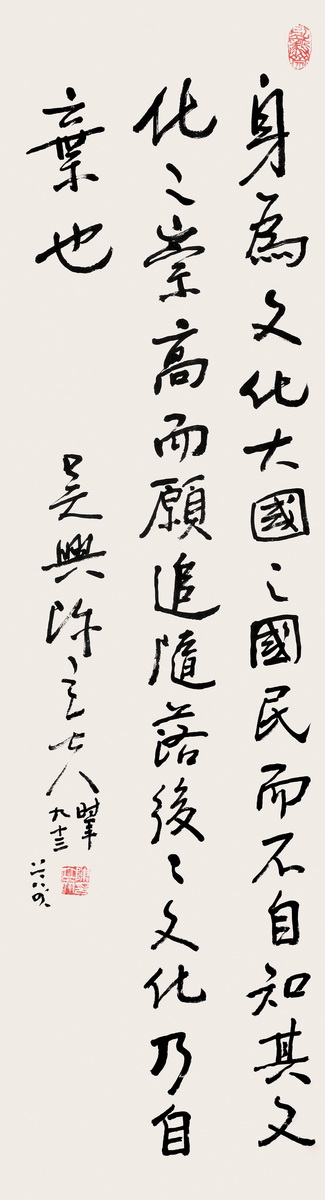 身為文化大國之國民而不自知其文
化之崇高而願追隨落後之文化乃自
棄也
吳興陳立夫
時年
九十三